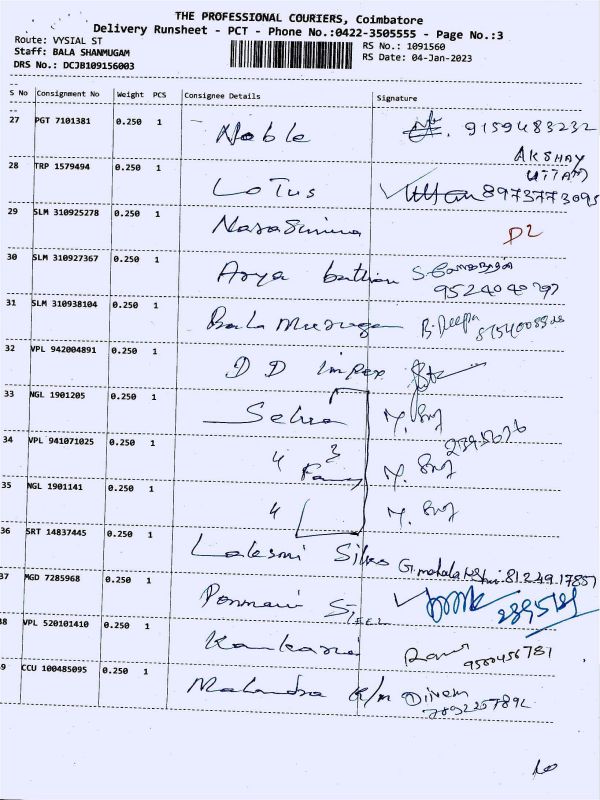 THE PROFESSIONAL COURIERS, Coimbatore
Delivery Runsheet - PCT - Phone No.:0422-3505555 - Page No.:3
Route: VYSIAL ST
Staff: BALA SHANMUGAM
DRS No.: DCJB109156003
RS No.: 1091560
RS Date: 04-Jan-2023
S No Consignment No Weight PCS Consignee Details Signature
27 PGT 7101381 0.250 1 Noble 9159483232
AKSHAY
UTTAM
28 TRP 1579494 0.250 1 LoTus 8973773095
29 SLM 310925278 0.250 1 D2
30 SLM 310927367 0.250 1 Arya
9524040797
31 SLM 310938104 0.250 1 Bala Murugan B. Deepa
32 VPL 942004891 0.250 1 D D Impex
33 NGL 1901205 0.250 1 Selva
34 VPL 941071025 0.250 1 4 3
2395676
35 NGL 1901141 0.250 1 4
36 SRT 14837445 0.250 1 81.249.17851
37 MGD 7285968 0.250 1 STEEL
38 VPL 520101410 0.250 1
9500456781
39 CCU 100485095 0.250 1 Mahendra